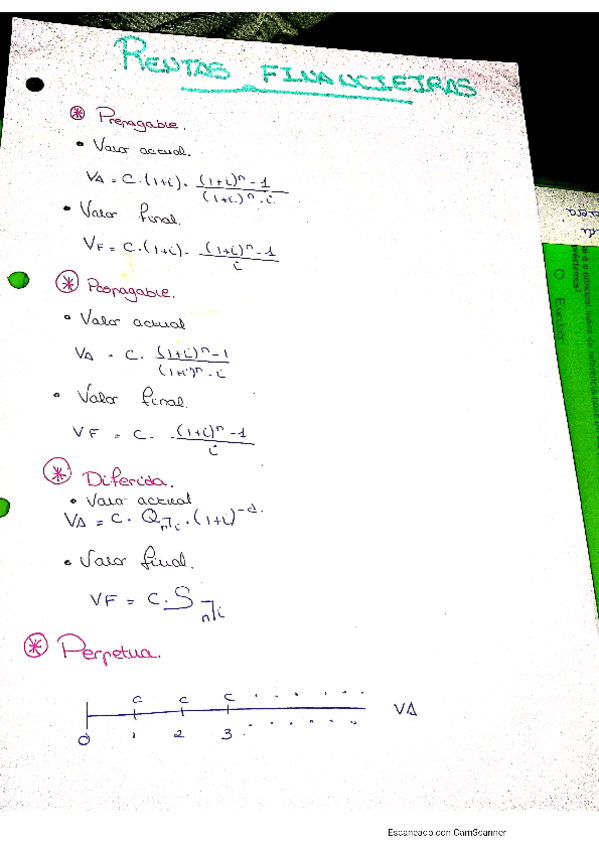 RENTAS FINANCIEIRAS
⊛ Prepagable.
• Valor actual.
VA = C·(1+i)· (1+i)ⁿ-1 / (1+i)ⁿ·i
• Valor final.
VF = C·(1+i)· (1+i)ⁿ-1 / i
⊛ Pospagable.
• Valor actual
VA = C· (1+i)ⁿ-1 / (1+i)ⁿ·i
• Valor final.
VF = C· (1+i)ⁿ-1 / i
⊛ Diferida.
• Valor actual
VA = C· a n⌉i ·(1+i)^-d.
• Valor final.
VF = C·S n⌉i
⊛ Perpetua.
C C C . . . . . .
VA
0 1 2 3 . . . . . . .
al é o principal índice de referencia
préstamos?
O Euribor
Escaneado con CamScanner